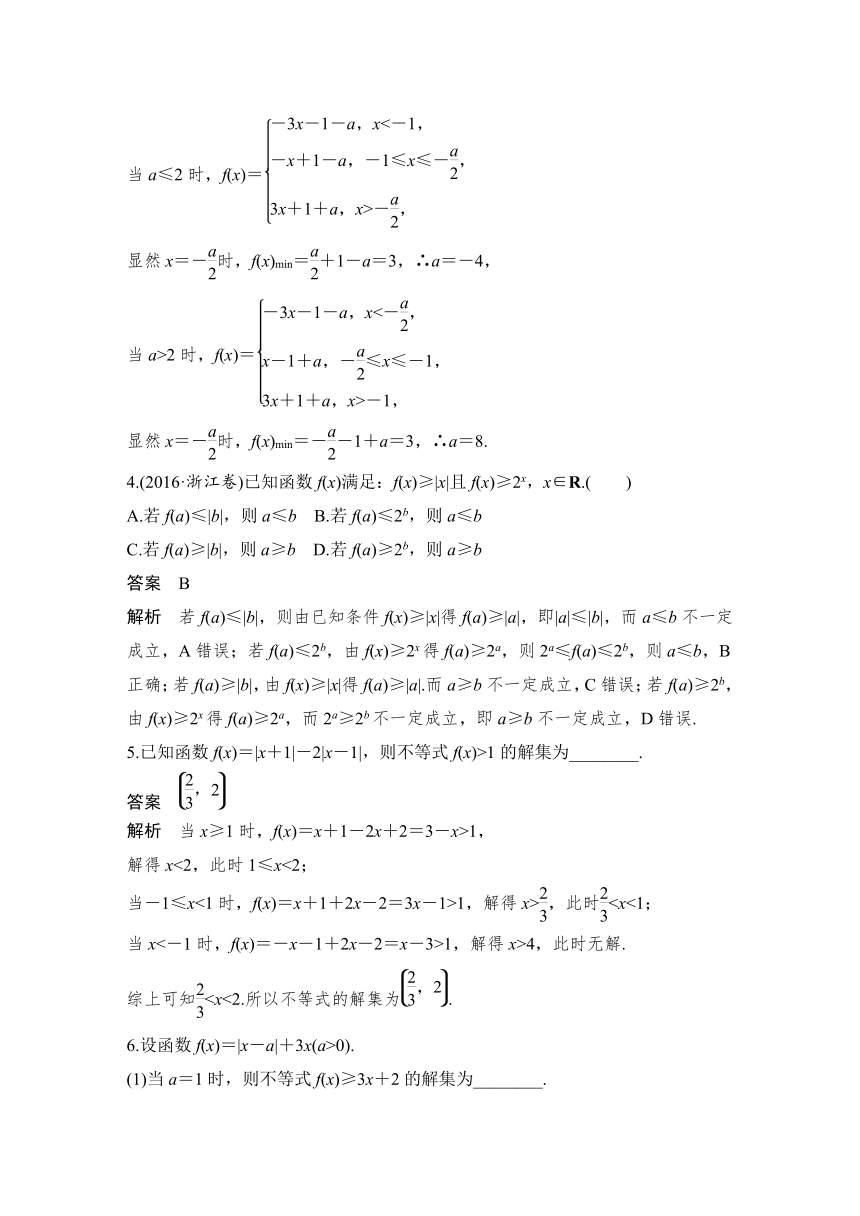 当a≤2时，f(x)＝{－3x－1－a，x<－1，
－x＋1－a，－1≤x≤－a/2，
3x＋1＋a，x>－a/2，
显然x＝－a/2时，f(x)min＝a/2＋1－a＝3，∴a＝－4，
当a>2时，f(x)＝{－3x－1－a，x<－a/2，
x－1＋a，－a/2≤x≤－1，
3x＋1＋a，x>－1，
显然x＝－a/2时，f(x)min＝－a/2－1＋a＝3，∴a＝8.
4.(2016·浙江卷)已知函数f(x)满足：f(x)≥|x|且f(x)≥2ˣ，x∈R.(　　)
A.若f(a)≤|b|，则a≤b　B.若f(a)≤2ᵇ，则a≤b
C.若f(a)≥|b|，则a≥b　D.若f(a)≥2ᵇ，则a≥b
答案　B
解析　若f(a)≤|b|，则由已知条件f(x)≥|x|得f(a)≥|a|，即|a|≤|b|，而a≤b不一定
成立，A错误；若f(a)≤2ᵇ，由f(x)≥2ˣ得f(a)≥2ᵃ，则2ᵃ≤f(a)≤2ᵇ，则a≤b，B
正确；若f(a)≥|b|，由f(x)≥|x|得f(a)≥|a|.而a≥b不一定成立，C错误；若f(a)≥2ᵇ，
由f(x)≥2ˣ得f(a)≥2ᵃ，而2ᵃ≥2ᵇ不一定成立，即a≥b不一定成立，D错误.
5.已知函数f(x)＝|x＋1|－2|x－1|，则不等式f(x)>1的解集为________.
答案　(2/3，2)
解析　当x≥1时，f(x)＝x＋1－2x＋2＝3－x>1，
解得x<2，此时1≤x<2；
当－1≤x<1时，f(x)＝x＋1＋2x－2＝3x－1>1，解得x>2/3，此时2/3<x<1；
当x<－1时，f(x)＝－x－1＋2x－2＝x－3>1，解得x>4，此时无解.
综上可知2/3<x<2.所以不等式的解集为(2/3，2).
6.设函数f(x)＝|x－a|＋3x(a>0).
(1)当a＝1时，则不等式f(x)≥3x＋2的解集为________.